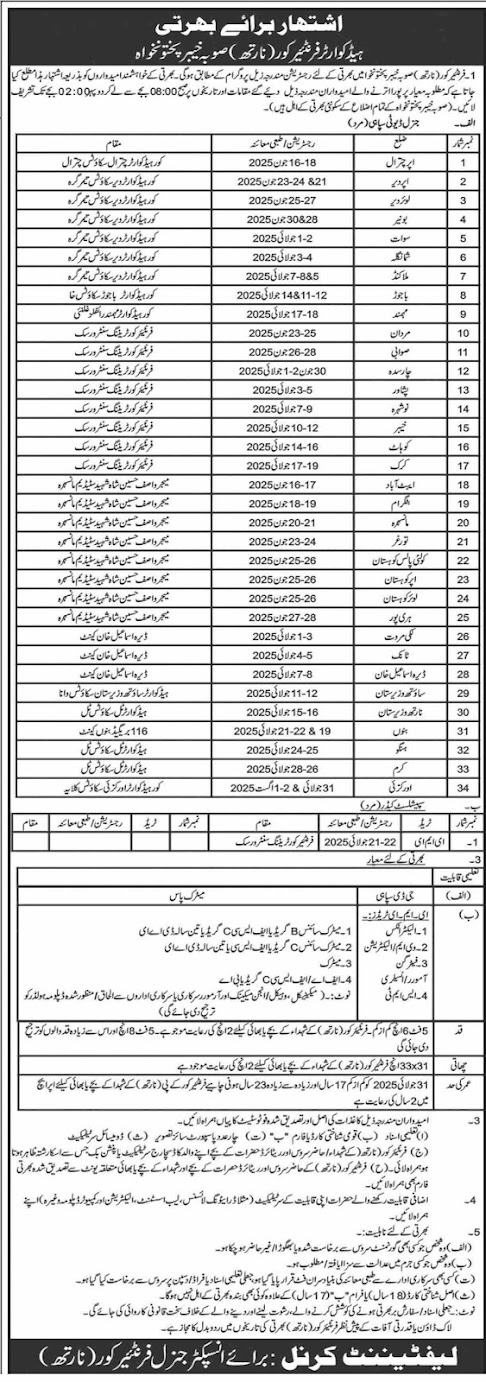 اشتہار برائے بھرتی
ہیڈ کوارٹر فرنٹیئر کور (نارتھ) صوبہ خیبر پختونخواہ
1- فرنٹیئر کور (نارتھ) صوبہ خیبر پختونخوا میں بھرتی کے لئے رجسٹریشن مندرجہ ذیل پروگرام کے مطابق ہوگی۔ بھرتی کے خواہشمند امیدواروں کو بذریعہ اشتہار ہذا مطلع کیا
جاتا ہے کہ مطلوبہ معیار پر پورا اترنے والے امیدواران مندرجہ ذیل دیئے گئے مقامات اور تاریخوں پر صبح 08:00 بجے سے لے کر دوپہر 02:00 بجے تک تشریف
لائیں۔ (صوبہ خیبر پختونخواہ کے تمام اضلاع کے سکونتی بھرتی کے اہل ہیں)۔
الف۔ جنرل ڈیوٹی سپاہی (مرد)
نمبر شمار ضلع رجسٹریشن/طبی معائنہ مقام
1 اپر چترال 16-18 جون 2025 کور ہیڈ کوارٹر چترال سکاؤٹس چترال
2 اپر دیر 21& 23-24 جون 2025 کور ہیڈ کوارٹر دیر سکاؤٹس تیمرگرہ
3 لوئر دیر 25-27 جون 2025 کور ہیڈ کوارٹر دیر سکاؤٹس تیمرگرہ
4 بونیر 28&30 جون 2025 کور ہیڈ کوارٹر دیر سکاؤٹس تیمرگرہ
5 سوات 1-2 جولائی 2025 کور ہیڈ کوارٹر دیر سکاؤٹس تیمرگرہ
6 شانگلہ 3-4 جولائی 2025 کور ہیڈ کوارٹر دیر سکاؤٹس تیمرگرہ
7 ملاکنڈ 5&7-8 جولائی 2025 کور ہیڈ کوارٹر دیر سکاؤٹس تیمرگرہ
8 باجوڑ 11-12 &14 جولائی 2025 کور ہیڈ کوارٹر باجوڑ سکاؤٹس خار
9 مہمند 17-18 جولائی 2025 کور ہیڈ کوارٹر مہمند رائفلز غلنئی
10 مردان 23-25 جون 2025 فرنٹیئر کور ٹریننگ سنٹر ورسک
11 صوابی 26-28 جون 2025 فرنٹیئر کور ٹریننگ سنٹر ورسک
12 چارسدہ 30 جون 1-2 جولائی 2025 فرنٹیئر کور ٹریننگ سنٹر ورسک
13 پشاور 3-5 جولائی 2025 فرنٹیئر کور ٹریننگ سنٹر ورسک
14 نوشہرہ 7-9 جولائی 2025 فرنٹیئر کور ٹریننگ سنٹر ورسک
15 خیبر 10-12 جولائی 2025 فرنٹیئر کور ٹریننگ سنٹر ورسک
16 کوہاٹ 14-16 جولائی 2025 فرنٹیئر کور ٹریننگ سنٹر ورسک
17 کرک 17-19 جولائی 2025 فرنٹیئر کور ٹریننگ سنٹر ورسک
18 ایبٹ آباد 16-17 جون 2025 میجر واصف حسین شاہ شہید سٹیڈیم مانسہرہ
19 بٹگرام 18-19 جون 2025 میجر واصف حسین شاہ شہید سٹیڈیم مانسہرہ
20 مانسہرہ 20-21 جون 2025 میجر واصف حسین شاہ شہید سٹیڈیم مانسہرہ
21 تورغر 23-24 جون 2025 میجر واصف حسین شاہ شہید سٹیڈیم مانسہرہ
22 کولئی پالس کوہستان 25-26 جون 2025 میجر واصف حسین شاہ شہید سٹیڈیم مانسہرہ
23 اپر کوہستان 25-26 جون 2025 میجر واصف حسین شاہ شہید سٹیڈیم مانسہرہ
24 لوئر کوہستان 25-26 جون 2025 میجر واصف حسین شاہ شہید سٹیڈیم مانسہرہ
25 ہری پور 27-28 جون 2025 میجر واصف حسین شاہ شہید سٹیڈیم مانسہرہ
26 لکی مروت 1-3 جولائی 2025 ڈیرہ اسماعیل خان کینٹ
27 ٹانک 4-5 جولائی 2025 ڈیرہ اسماعیل خان کینٹ
28 ڈیرہ اسماعیل خان 7-8 جولائی 2025 ڈیرہ اسماعیل خان کینٹ
29 ساؤتھ وزیرستان 11-12 جولائی 2025 ہیڈ کوارٹر ساؤتھ وزیرستان سکاؤٹس وانا
30 نارتھ وزیرستان 15-16 جولائی 2025 ہیڈ کوارٹر ٹل سکاؤٹس ٹل
31 بنوں 19 & 21-22 جولائی 2025 116 بریگیڈ بنوں کینٹ
32 ہنگو 24-25 جولائی 2025 ہیڈ کوارٹر ٹل سکاؤٹس ٹل
33 کرم 26-28 جولائی 2025 ہیڈ کوارٹر ٹل سکاؤٹس ٹل
34 اورکزئی 31 جولائی & 1-2 اگست 2025 کور ہیڈ کوارٹر اورکزئی سکاؤٹس کلایہ
ب۔ سپیشلسٹ کیڈر (مرد)
نمبر شمار ٹریڈ رجسٹریشن/طبی معائنہ مقام نمبر شمار ٹریڈ رجسٹریشن/طبی معائنہ مقام
1- ای ایم ای 21-22 جولائی 2025 فرنٹیئر کور ٹریننگ سنٹر ورسک
3- بھرتی کے لئے معیار
تعلیمی قابلیت
(الف) جی ڈی سپاہی میٹرک پاس
(ب) ای۔ ایم۔ ای ٹریڈز:۔
1- الیکٹرانکس 1- میٹرک سائنس B گریڈ یا ایف ایس سی C گریڈ یا تین سالہ ڈی اے ای
2- وی ایم/الیکٹریشن 2- میٹرک سائنس C گریڈ یا ایف ایس سی یا تین سالہ ڈی اے ای
3- فیٹر گن 3- میٹرک
آرمورر/آرٹلری 4- ایف اے/ایف ایس سی C گریڈ یا بی اے
4- ایس ایم ٹی نوٹ:۔ (میکینیکل، وہیکل/انجن مکینک اور آرمورر سرکاری یا سرکاری اداروں سے الحاق/منظور شدہ ڈپلومہ ہولڈر کو
ترجیح دی جائے گی)
قد 5 فٹ 6 انچ کم از کم۔ فرنٹیئر کور (نارتھ) کے شہداء کے بچے یا بھائی کیلئے 2 انچ کی رعایت موجود ہے۔ 5 فٹ 8 انچ اور اس سے زیادہ قد والوں کو ترجیح
دی جائے گی
چھاتی 33x31 انچ فرنٹیئر کور (نارتھ) کے شہداء کے بچے یا بھائی کیلئے 2 انچ کی رعایت موجود ہے
عمر کی حد 31 جولائی 2025 کو کم از کم 17 سال اور زیادہ سے زیادہ 23 سال ہونی چاہیے فرنٹیئر کور کے پی (نارتھ) کے شہداء کے بچے یا بھائی کیلئے اپر ایج
میں 2 سال کی رعایت ہے
3- امیدواران مندرجہ ذیل کاغذات کی اصل اور تصدیق شدہ فوٹو سٹیٹ کاپیاں ہمراہ لائیں۔
(ا) تعلیمی اسناد (ب) قومی شناختی کارڈ یا فارم "ب" (ت) چار عدد پاسپورٹ سائز تصویر (ث) ڈومیسائل سرٹیفکیٹ
(ج) فرنٹیئر کور (نارتھ) کے شہداء/حاضر سروس اور ریٹائرڈ حضرات کے بچے اپنے والد کا ڈسچارج سرٹیفکیٹ یا پنشن بک جس سے اسکا رشتہ ظاہر ہوتا
ہو ہمراہ لائی۔ (ح) فرنٹیئر کور (نارتھ) کے حاضر سروس اور ریٹائرڈ حضرات کے بچے اور شہداء کے بچے یا بھائی متعلقہ یونٹ سے تصدیق شدہ بھرتی
فارم بھی ہمراہ لائیں۔
4- اضافی قابلیت رکھنے والے حضرات اپنی قابلیت کے سرٹیفکیٹ (مثلا ڈرائیونگ لائسنس، لیب اسسٹنٹ، الیکٹریشن اور کمپیوٹر ڈپلومہ وغیرہ) اپنے
ہمراہ لائیں۔
5- بھرتی کے لئے نااہلیت:۔
(الف) وہ شخص جو کسی بھی گورنمنٹ سروس سے برخاست شدہ یا بھگوڑا/غیر حاضر ہو چکا ہو۔
(ب) وہ شخص جو کسی جرم میں عدالت سے سزا یافتہ/مطلوب ہو۔
(ت) کسی بھی سرکاری ادارے سے طبی معائنہ کی بنیاد پر ان فٹ قرار پایا گیا ہو جعلی تعلیمی اسناد یا فراڈ/ڈسپلن پر سروس سے برخاست کیا گیا ہو۔
(ث) اصل شناختی کارڈ (18 سال) یا فارم "ب" (17 سال) کے علاوہ کوئی بھی بندہ بھرتی کے اہل نہیں ہوگا۔
نوٹ:۔ جعلی اسناد/سفارش پر بھرتی ہونے کی کوشش کرنے والے، رشوت لینے اور دینے والے کے خلاف سخت قانونی کاروائی کی جائے گی۔
لاک ڈاؤن یا قدرتی آفات کے پیش نظر فرنٹیئر کور (نارتھ) بھرتی کی تاریخوں میں ردوبدل کا مجاز ہے۔
لیفٹیننٹ کرنل: برائے انسپکٹر جنرل فرنٹیئر کور (نارتھ)